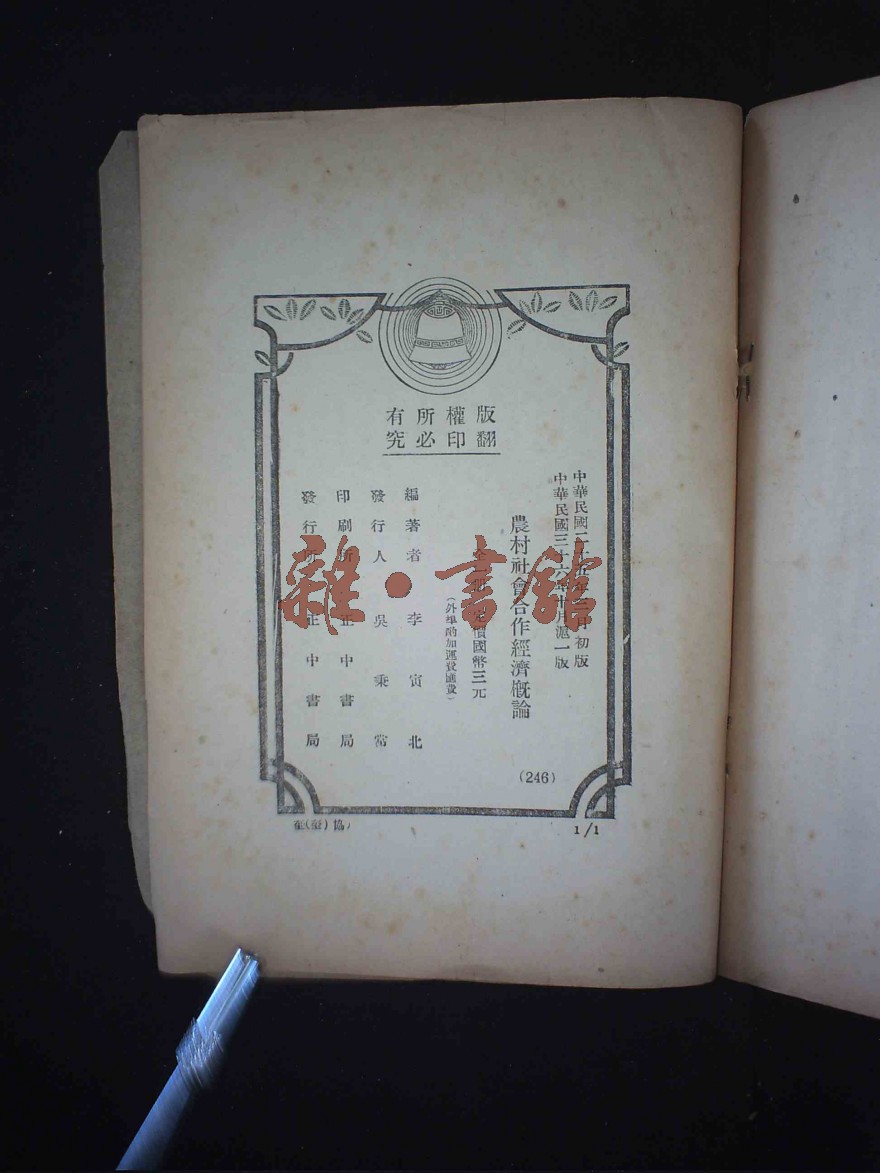 版權所有
翻印必究
中華民國二十五年 月初版
中華民國三十六年十月滬一版
農村社會合作經濟概論
全一冊 定價國幣三元
(外埠酌加運費匯費)
編著者 李寅北
發行人 吳秉常
印刷所 正中書局
發行所 正中書局
(246)
1/1
雜·書館